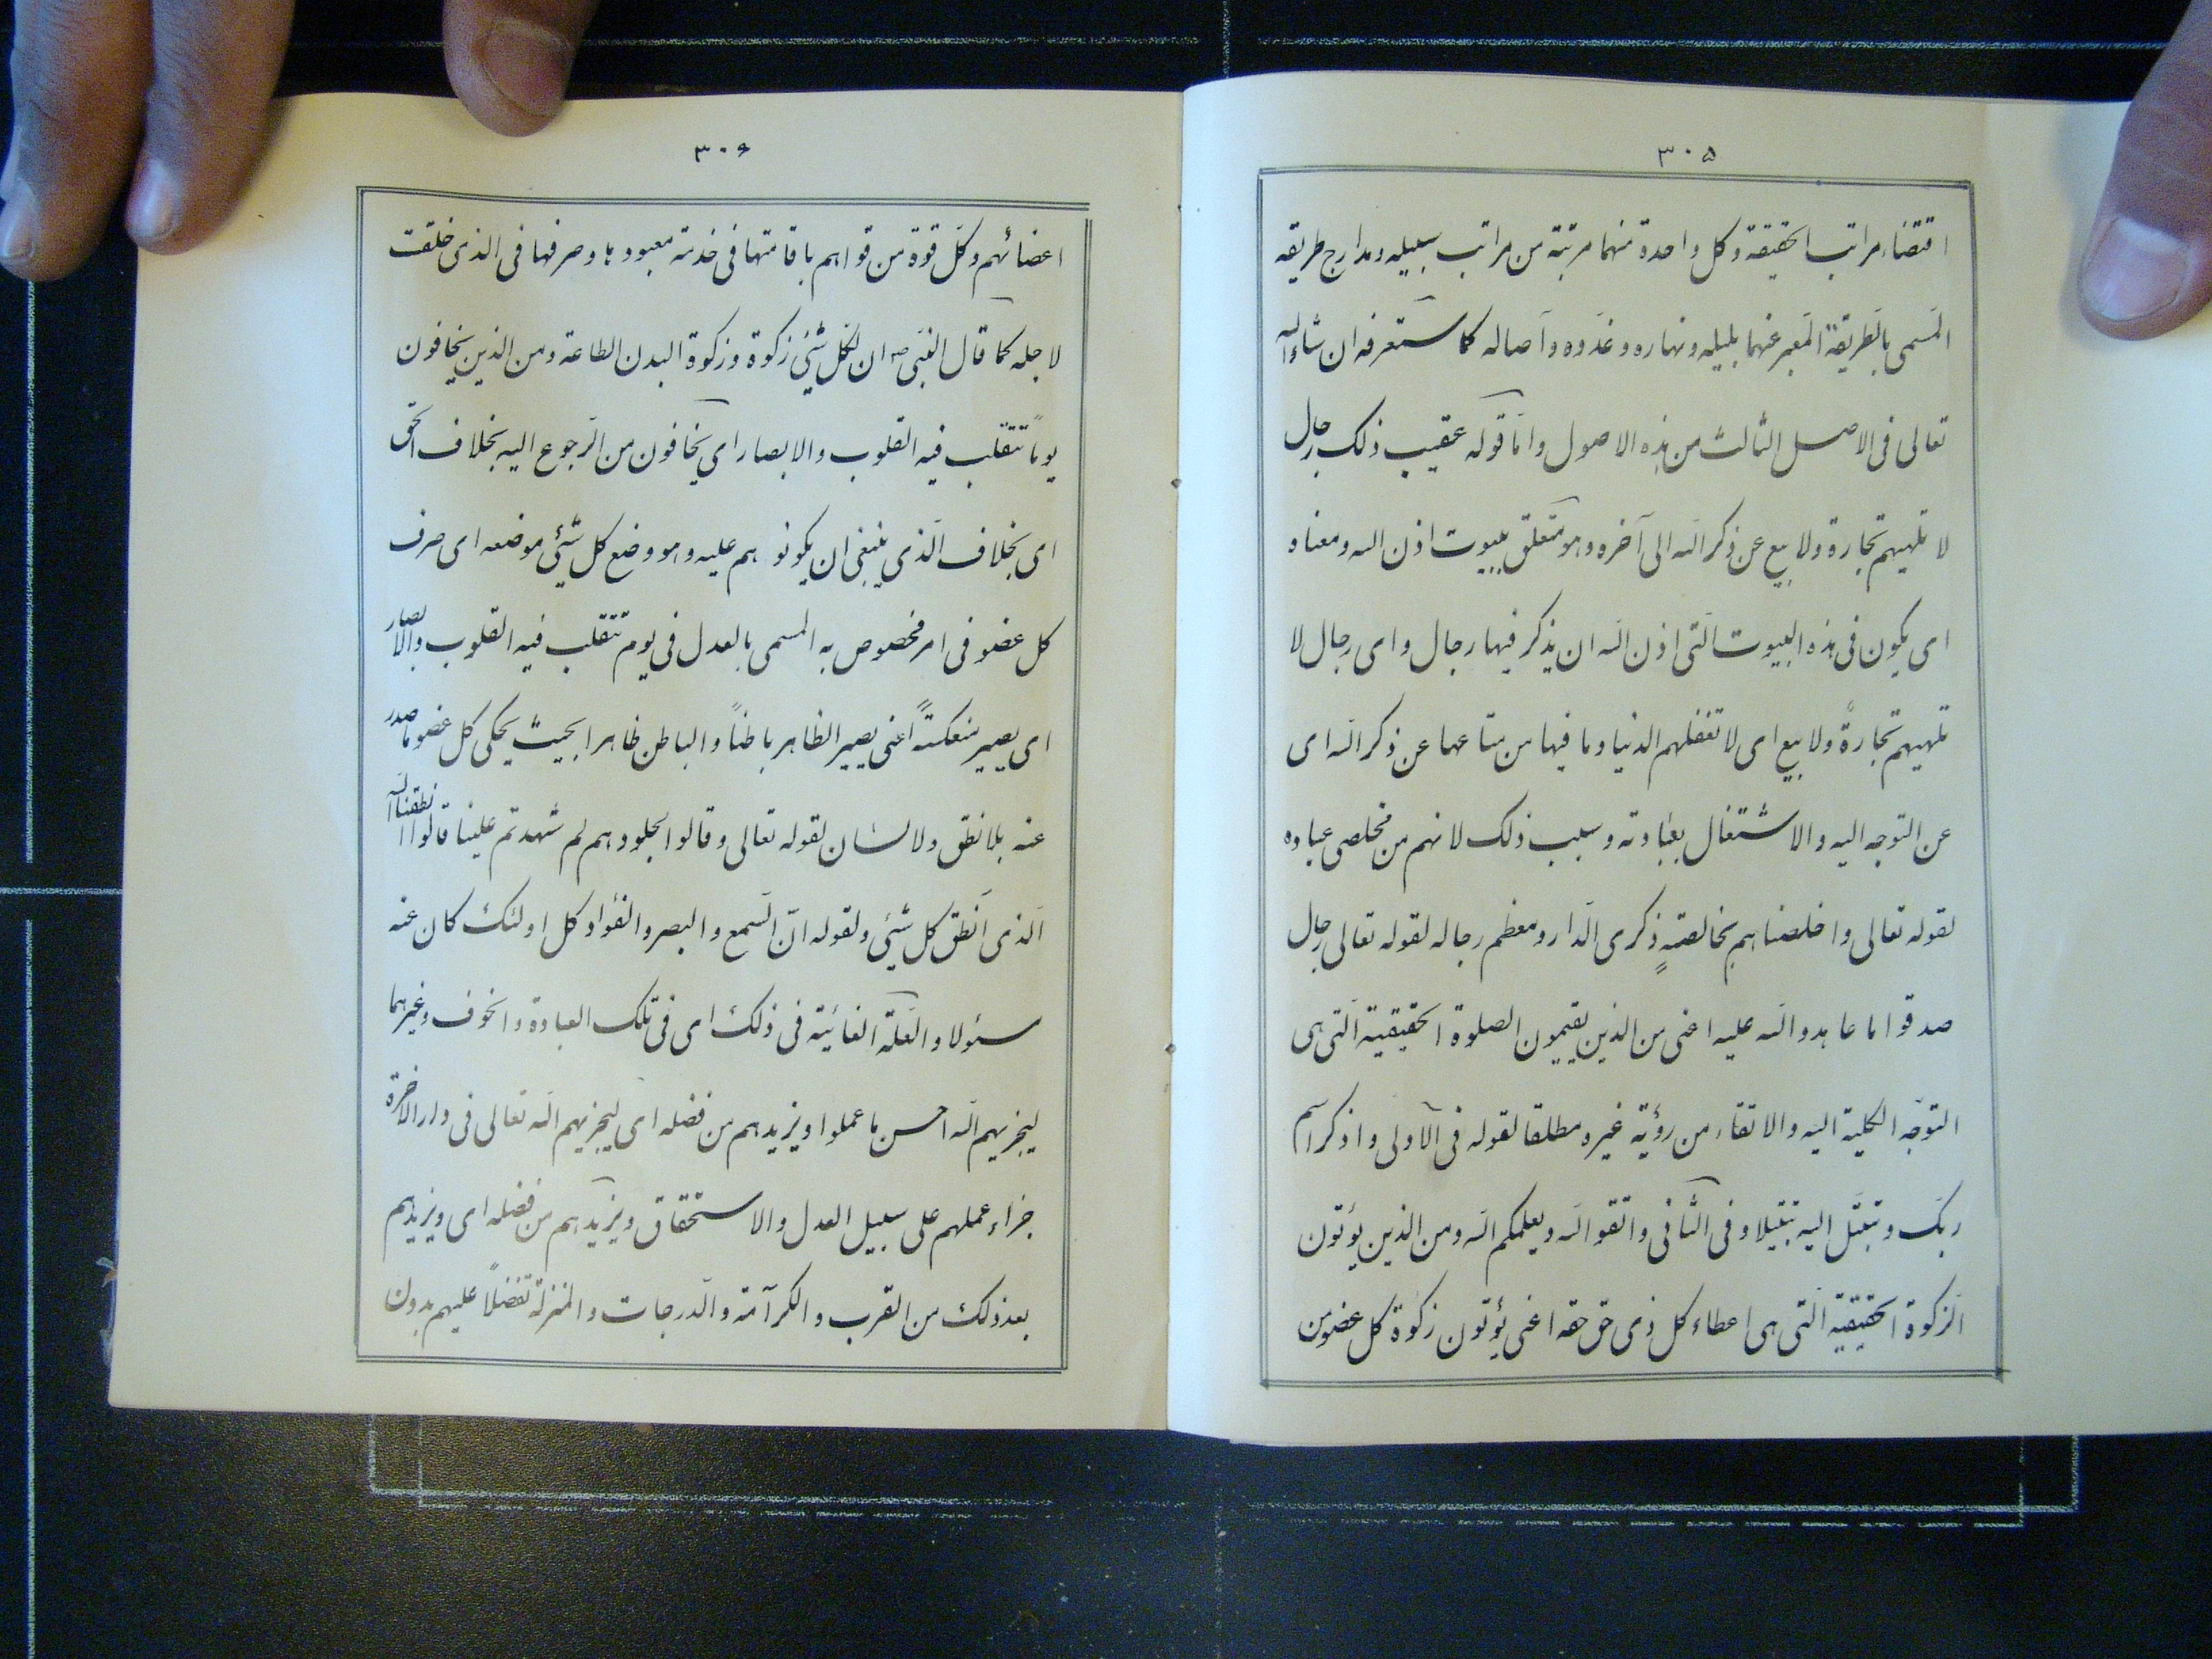 ۳۰۵
اقتضاء مراتب الحقیقة وکل واحدة منهما مرتبة من مراتب سبیله ومدارج طریقه
المسمی بالطریقة المعبر عنهما بلیله ونهاره وغدوه وآصاله کما ستعرفه ان شاءالله
تعالی فی الاصل الثالث من هذه الاصول واما قوله عقیب ذلک رجال
لا تلهیهم تجارة ولا بیع عن ذکر الله الی آخره وهو متعلق ببیوت اذن الله ومعناه
ای یکون فی هذه البیوت التی اذن الله ان یذکر فیها رجال وای رجال لا
تلهیهم تجارةً ولا بیع ای لا تغفلهم الدنیا وما فیها من متاعها عن ذکر الله ای
عن التوجه الیه والاشتغال بعبادته وسبب ذلک لانهم من مخلصی عباده
لقوله تعالی واخلصناهم بخالصةٍ ذکری الدار ومعظم رجاله لقوله تعالی رجال
صدقوا ما عاهدوا الله علیه اعنی من الذین یقیمون الصلوة الحقیقیة التی هی
التوجه الکلیة الیه والاتقاء من رؤیة غیره مطلقا لقوله فی الاولی واذکر اسم
ربک وتبتل الیه تبتیلا وفی الثانی واتقوا الله ویعلمکم الله ومن الذین یؤتون
الزکوة الحقیقیة التی هی اعطاء کل ذی حق حقه اعنی یؤتون زکوة کل عضو من
۳۰۶
اعضائهم وکل قوة من قواهم باقامتها فی خدمة معبودها وصرفها فی الذی خلقت
لاجله کما قال النبی ص ان لکل شئی زکوة وزکوة البدن الطاعة ومن الذین یخافون
یوماً تتقلب فیه القلوب والابصار ای یخافون من الرجوع الیه بخلاف الحق
ای بخلاف الذی ینبغی ان یکونو هم علیه وهو وضع کل شئی موضعه ای صرف
کل عضو فی امر مخصوص به المسمی بالعدل فی یوم تتقلب فیه القلوب والابصار
ای یصیر منعکسةً اعنی یصیر الظاهر باطناً والباطن ظاهرا بحیث یحکی کل عضو ما صدر
عنه بلا نطق ولا لسان لقوله تعالی وقالوا لجلودهم لم شهدتم علینا قالوا انطقنا الله
الذی انطق کل شئی ولقوله ان السمع والبصر والفؤاد کل اولئک کان عنه
مسئولا والعلة الغائیة فی ذلک ای فی تلک العبادة والخوف وغیرهما
لیجزیهم الله احسن ما عملوا ویزیدهم من فضله ای لیجزیهم الله تعالی فی دار الاخرة
جزاء عملهم علی سبیل العدل والاستحقاق ویزیدهم من فضله ای ویزیدهم
بعد ذلک من القرب والکرامة والدرجات والمنزلة تفضلاً علیهم بدون